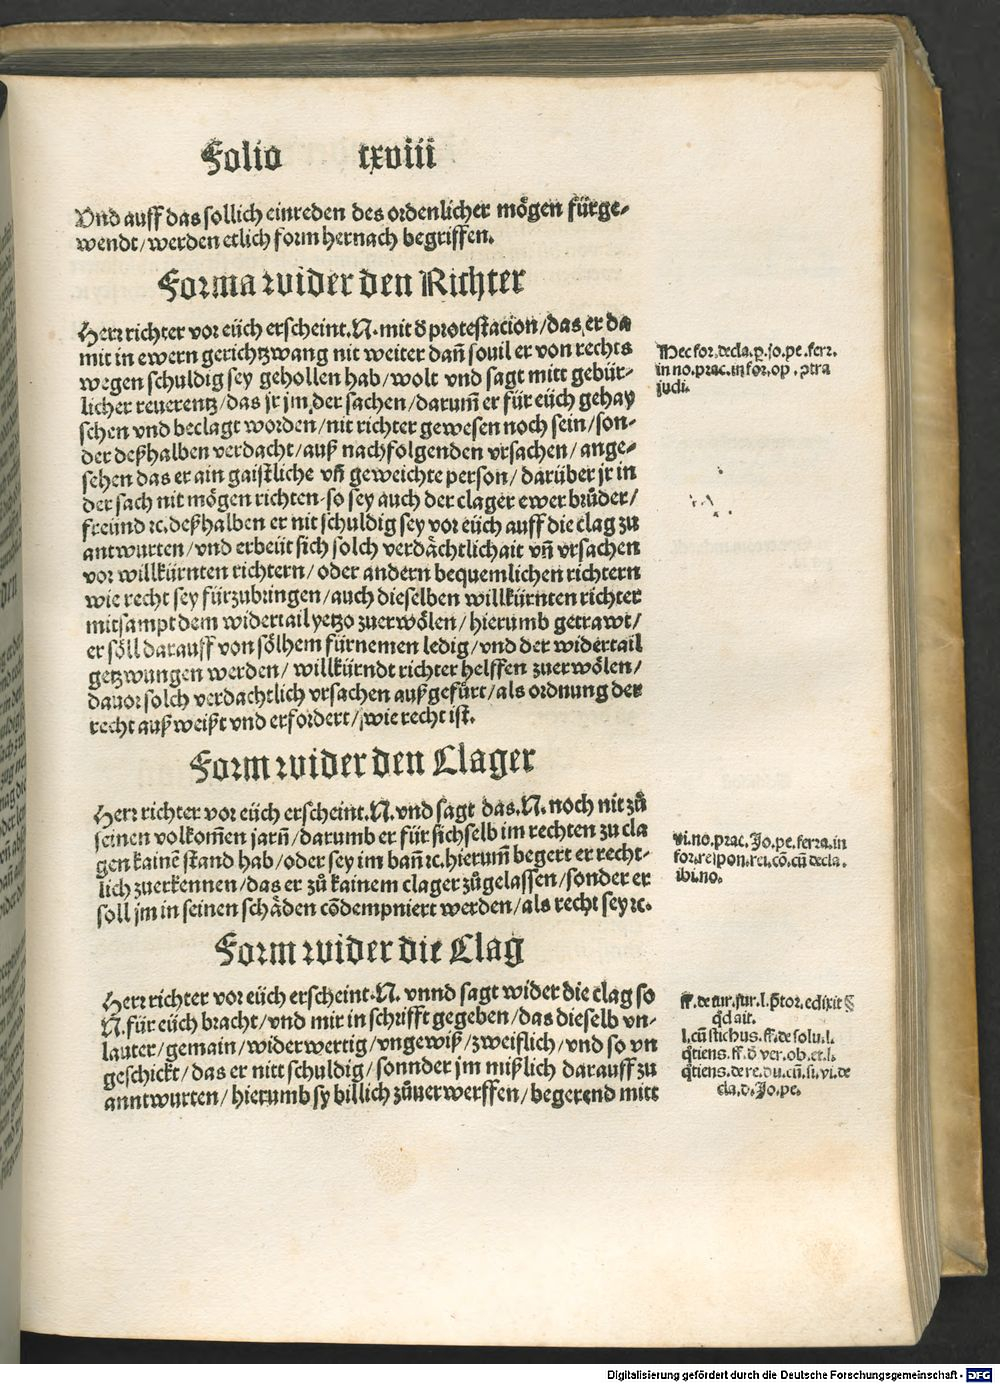 Folio lxviii
Vnd auff das sollich einreden des ordenlicher mögen fürge-
wendt/werden etlich form hernach begriffen.
Forma wider den Richter
Herr richter vor eüch erscheint.N.mit d̄ protestacion/das er da
mit in ewern gerichtzwang nit weiter dañ souil er von rechts
wegen schuldig sey gehollen hab/wolt vnd sagt mitt gebür-
licher reuerentz/das jr jm der sachen/darum̃ er für eüch gehay
schen vnd beclagt worden/nit richter gewesen noch sein/son-
der deßhalben verdacht/auß nachfolgenden vrsachen/ange-
sehen das er ain gaistliche vñ geweichte person/darüber jr in
der sach nit mögen richten-so sey auch der clager ewer brůder/
freünd ꝛc.deßhalben er nit schuldig sey vor eüch auff die clag zu
antwurten/vnd erbeüt sich solch verdächtlichait vñ vrsachen
vor willkürnten richtern/oder andern bequemlichen richtern
wie recht sey fürzubringen/auch dieselben willkürnten richter
mitsampt dem widertail yetzo zuerwölen/hierumb getrawt/
er söll darauff von sölhem fürnemen ledig/vnd der widertail
getzwungen werden/willkürndt richter helffen zuerwölen/
dauor solch verdachtlich vrsachen außgefürt/als ordnung der
recht außweißt vnd erfordert/wie recht ist.
Form wider den Clager
Herr richter vor eüch erscheint.N.vnd sagt das.N.noch nit zů
seinen volkom̃en jarñ/darumb er für sichselb im rechten zu cla
gen kainẽ stand hab/oder sey im bañ ꝛc.hierum̃ begert er recht-
lich zuerkennen/das er zů kainem clager zůgelassen/sonder er
soll jm in seinen schäden cõdempniert werden/als recht sey ꝛc.
Form wider die Clag
Herr richter vor eüch erscheint.N.vnnd sagt wider die clag so
N.für eüch bracht/vnd mir in schrifft gegeben/das dieselb vn-
lauter/gemain/widerwertig/vngewiß/zweiflich/vnd so vn
geschickt/das er nitt schuldig/sonnder jm mißlich darauff zu
anntwurten/hierumb sy billich zůuerwerffen/begerend mitt
Hec for.decla.p.jo.pe.ferr.
in no.prac.in for.op.ꝯtra
judi.
vi.no.prac.Jo.pe.ferra.in
for.respon.rei.cõ.cũ decla.
ibi.no.
ff.de iur.iur.l.p̃tor.edixit §
q̃d ait.
l.cũ stichus.ff.de solu.l.
q̃tiens.ff.d̄ ver.ob.et.l.
q̃tiens.de re.du.cũ.si.vi.de
cla.d.Jo.pe.
Digitalisierung gefördert durch die Deutsche Forschungsgemeinschaft - DFG